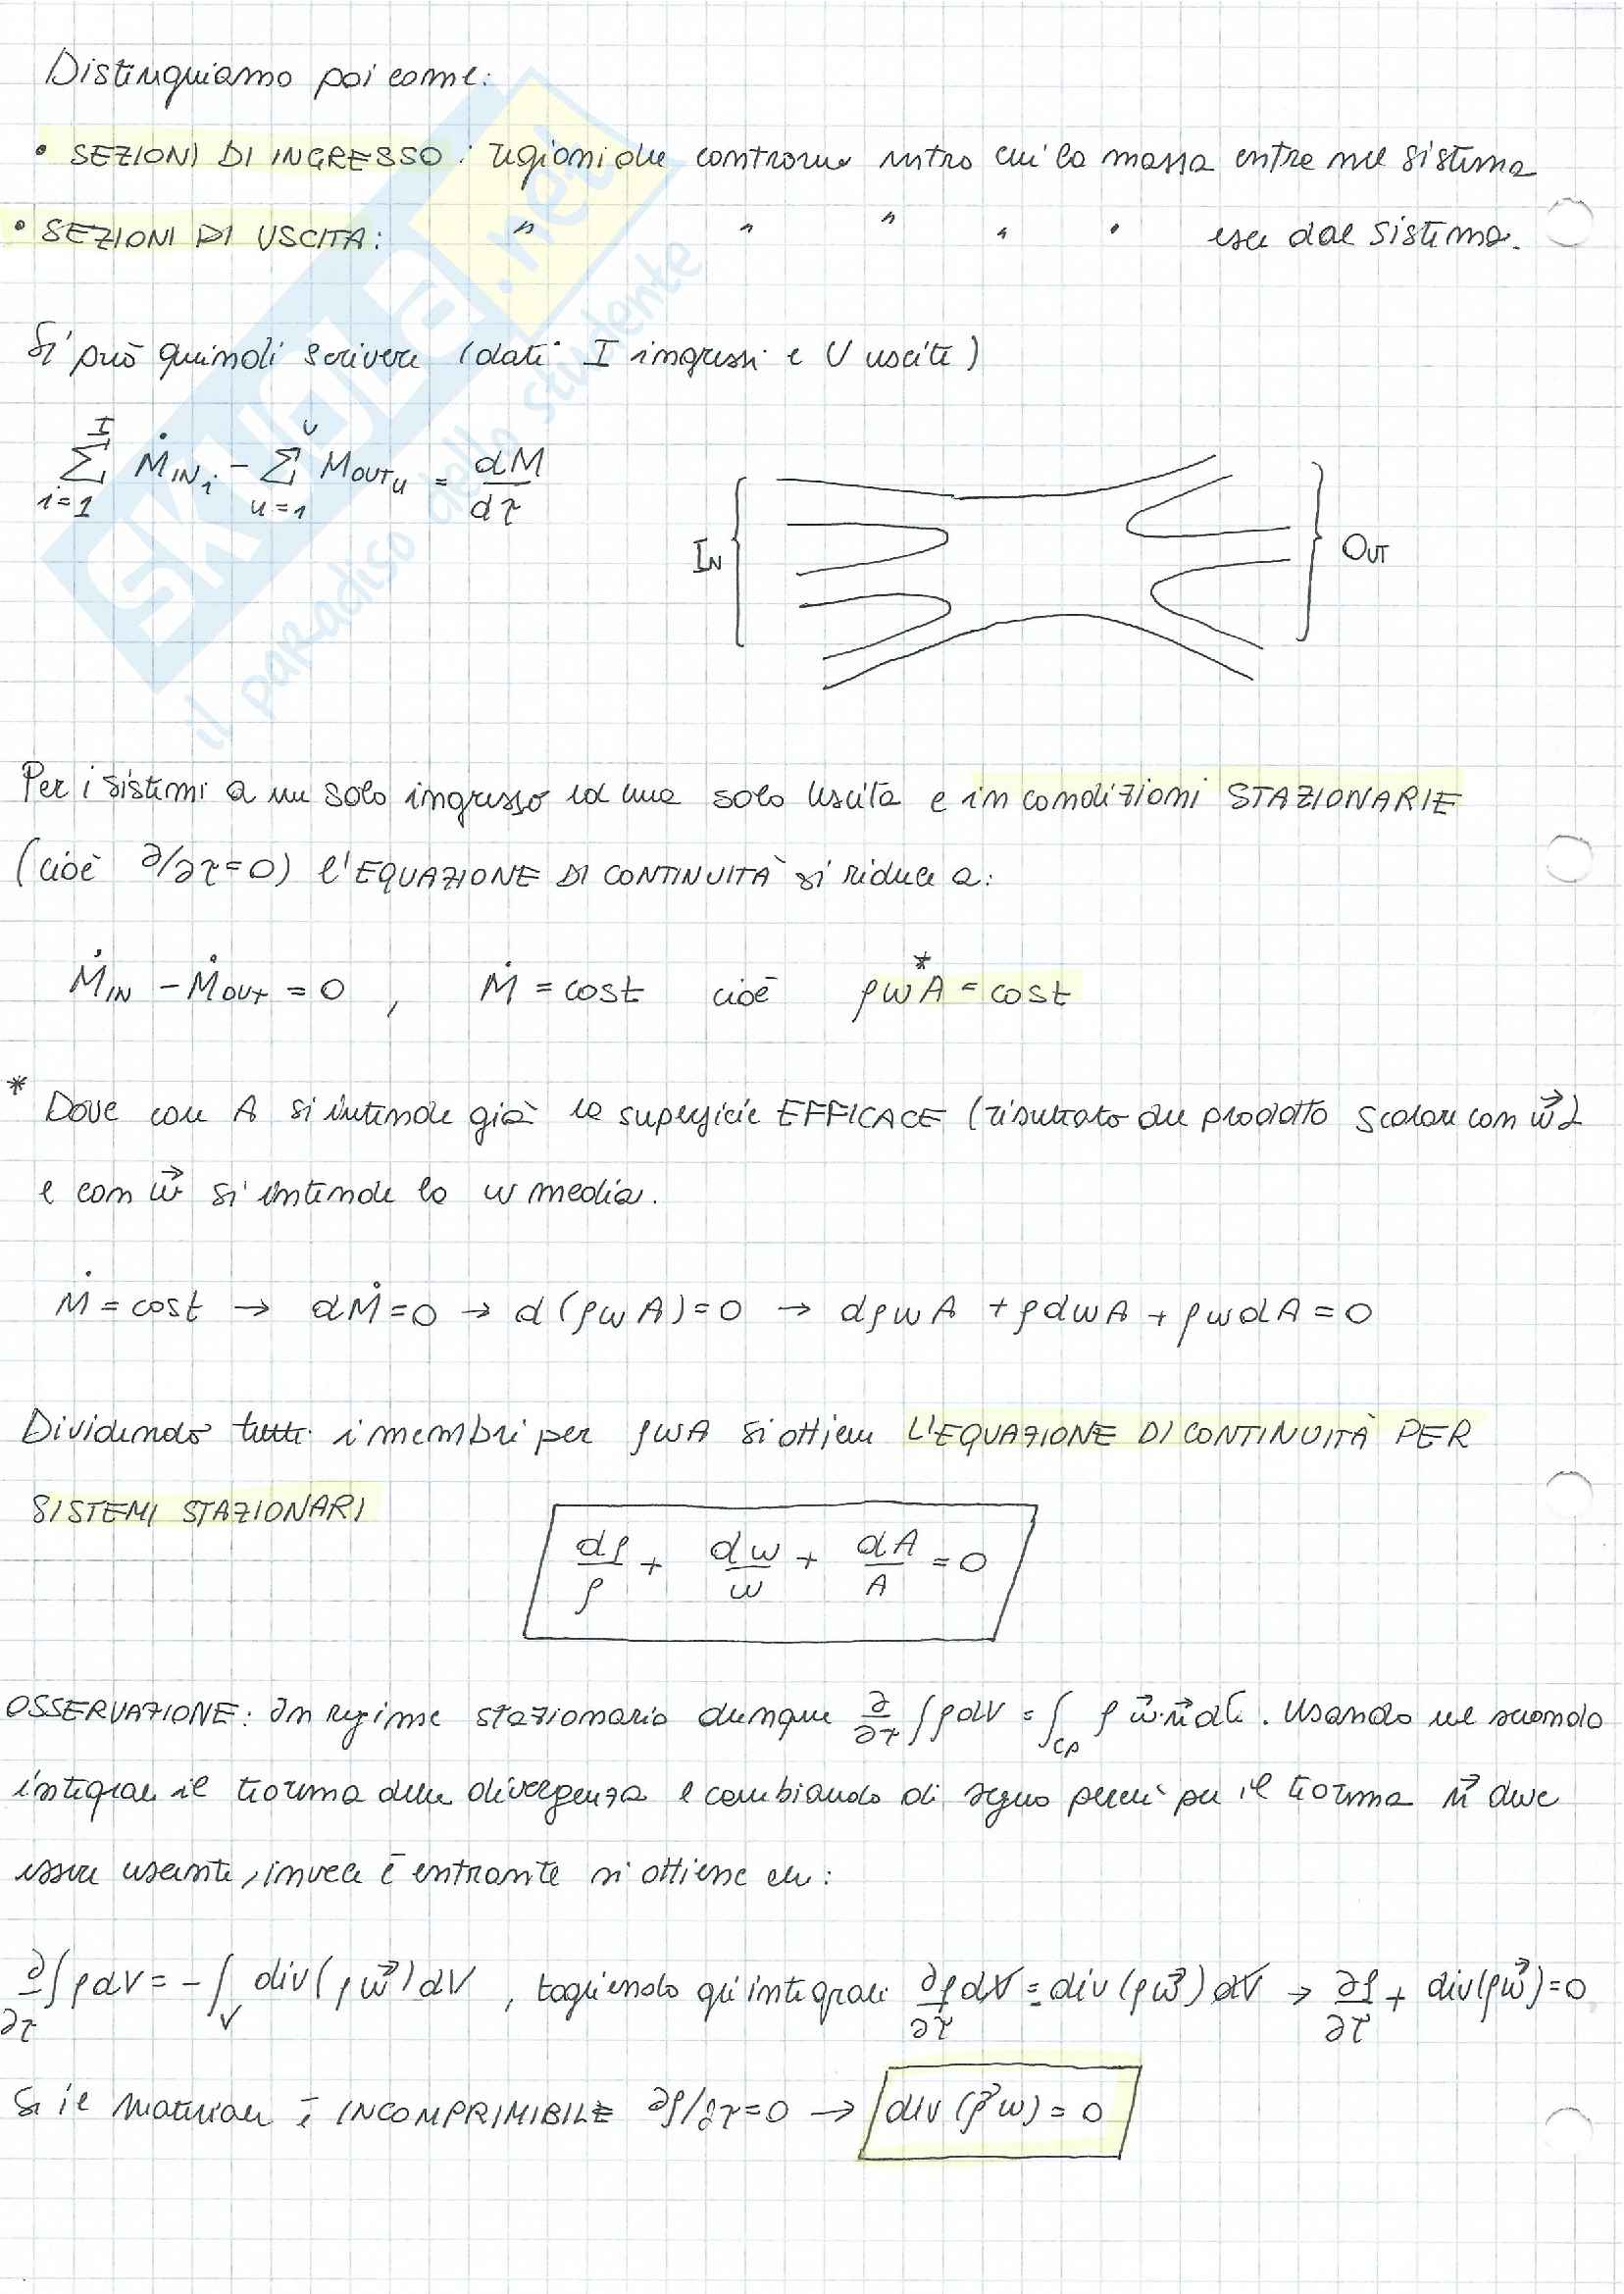 Distinguiamo poi come:
• SEZIONI DI INGRESSO: regioni del contorno entro cui la massa entra nel sistema
• SEZIONI DI USCITA: " " " " " esce dal sistema.
Si può quindi scrivere (dati I ingressi e U uscite)
∑_{i=1}^{I} Ṁ_{IN_i} - ∑_{u=1}^{U} M_{OUT_u} = dM/dτ
IN
OUT
Per i sistemi a un solo ingresso ed una sola uscita e in condizioni STAZIONARIE
(cioè ∂/∂τ=0) l'EQUAZIONE DI CONTINUITÀ si riduce a:
Ṁ_{IN} - Ṁ_{OUT} = 0 , Ṁ = cost cioè ρwA* = cost
* Dove con A si intende già la superficie EFFICACE (risultato del prodotto scalare con w⃗)
e con w⃗ si intende la w media.
Ṁ = cost → dṀ=0 → d(ρwA)=0 → dρwA + ρdwA + ρwdA = 0
Dividendo tutti i membri per ρwA si ottiene L'EQUAZIONE DI CONTINUITÀ PER
SISTEMI STAZIONARI
dρ/ρ + dw/w + dA/A = 0
OSSERVAZIONE: In regime stazionario dunque ∂/∂τ ∫ρdV = ∫_{CP} ρ w⃗·n⃗ d. Usando nel secondo
integrale il teorema della divergenza e cambiando di segno perché per il teorema n⃗ deve
essere uscente, invece è entrante si ottiene che:
∂/∂τ ∫ρdV = -∫_V div(ρw⃗)dV , togliendo gli integrali ∂ρ/∂τ dV = -div(ρw⃗) dV → ∂ρ/∂τ + div(ρw⃗)=0
Se il materiale è INCOMPRIMIBILE ∂ρ/∂τ=0 → div(ρ⃗w) = 0
skuola.net
il paradiso dello studente